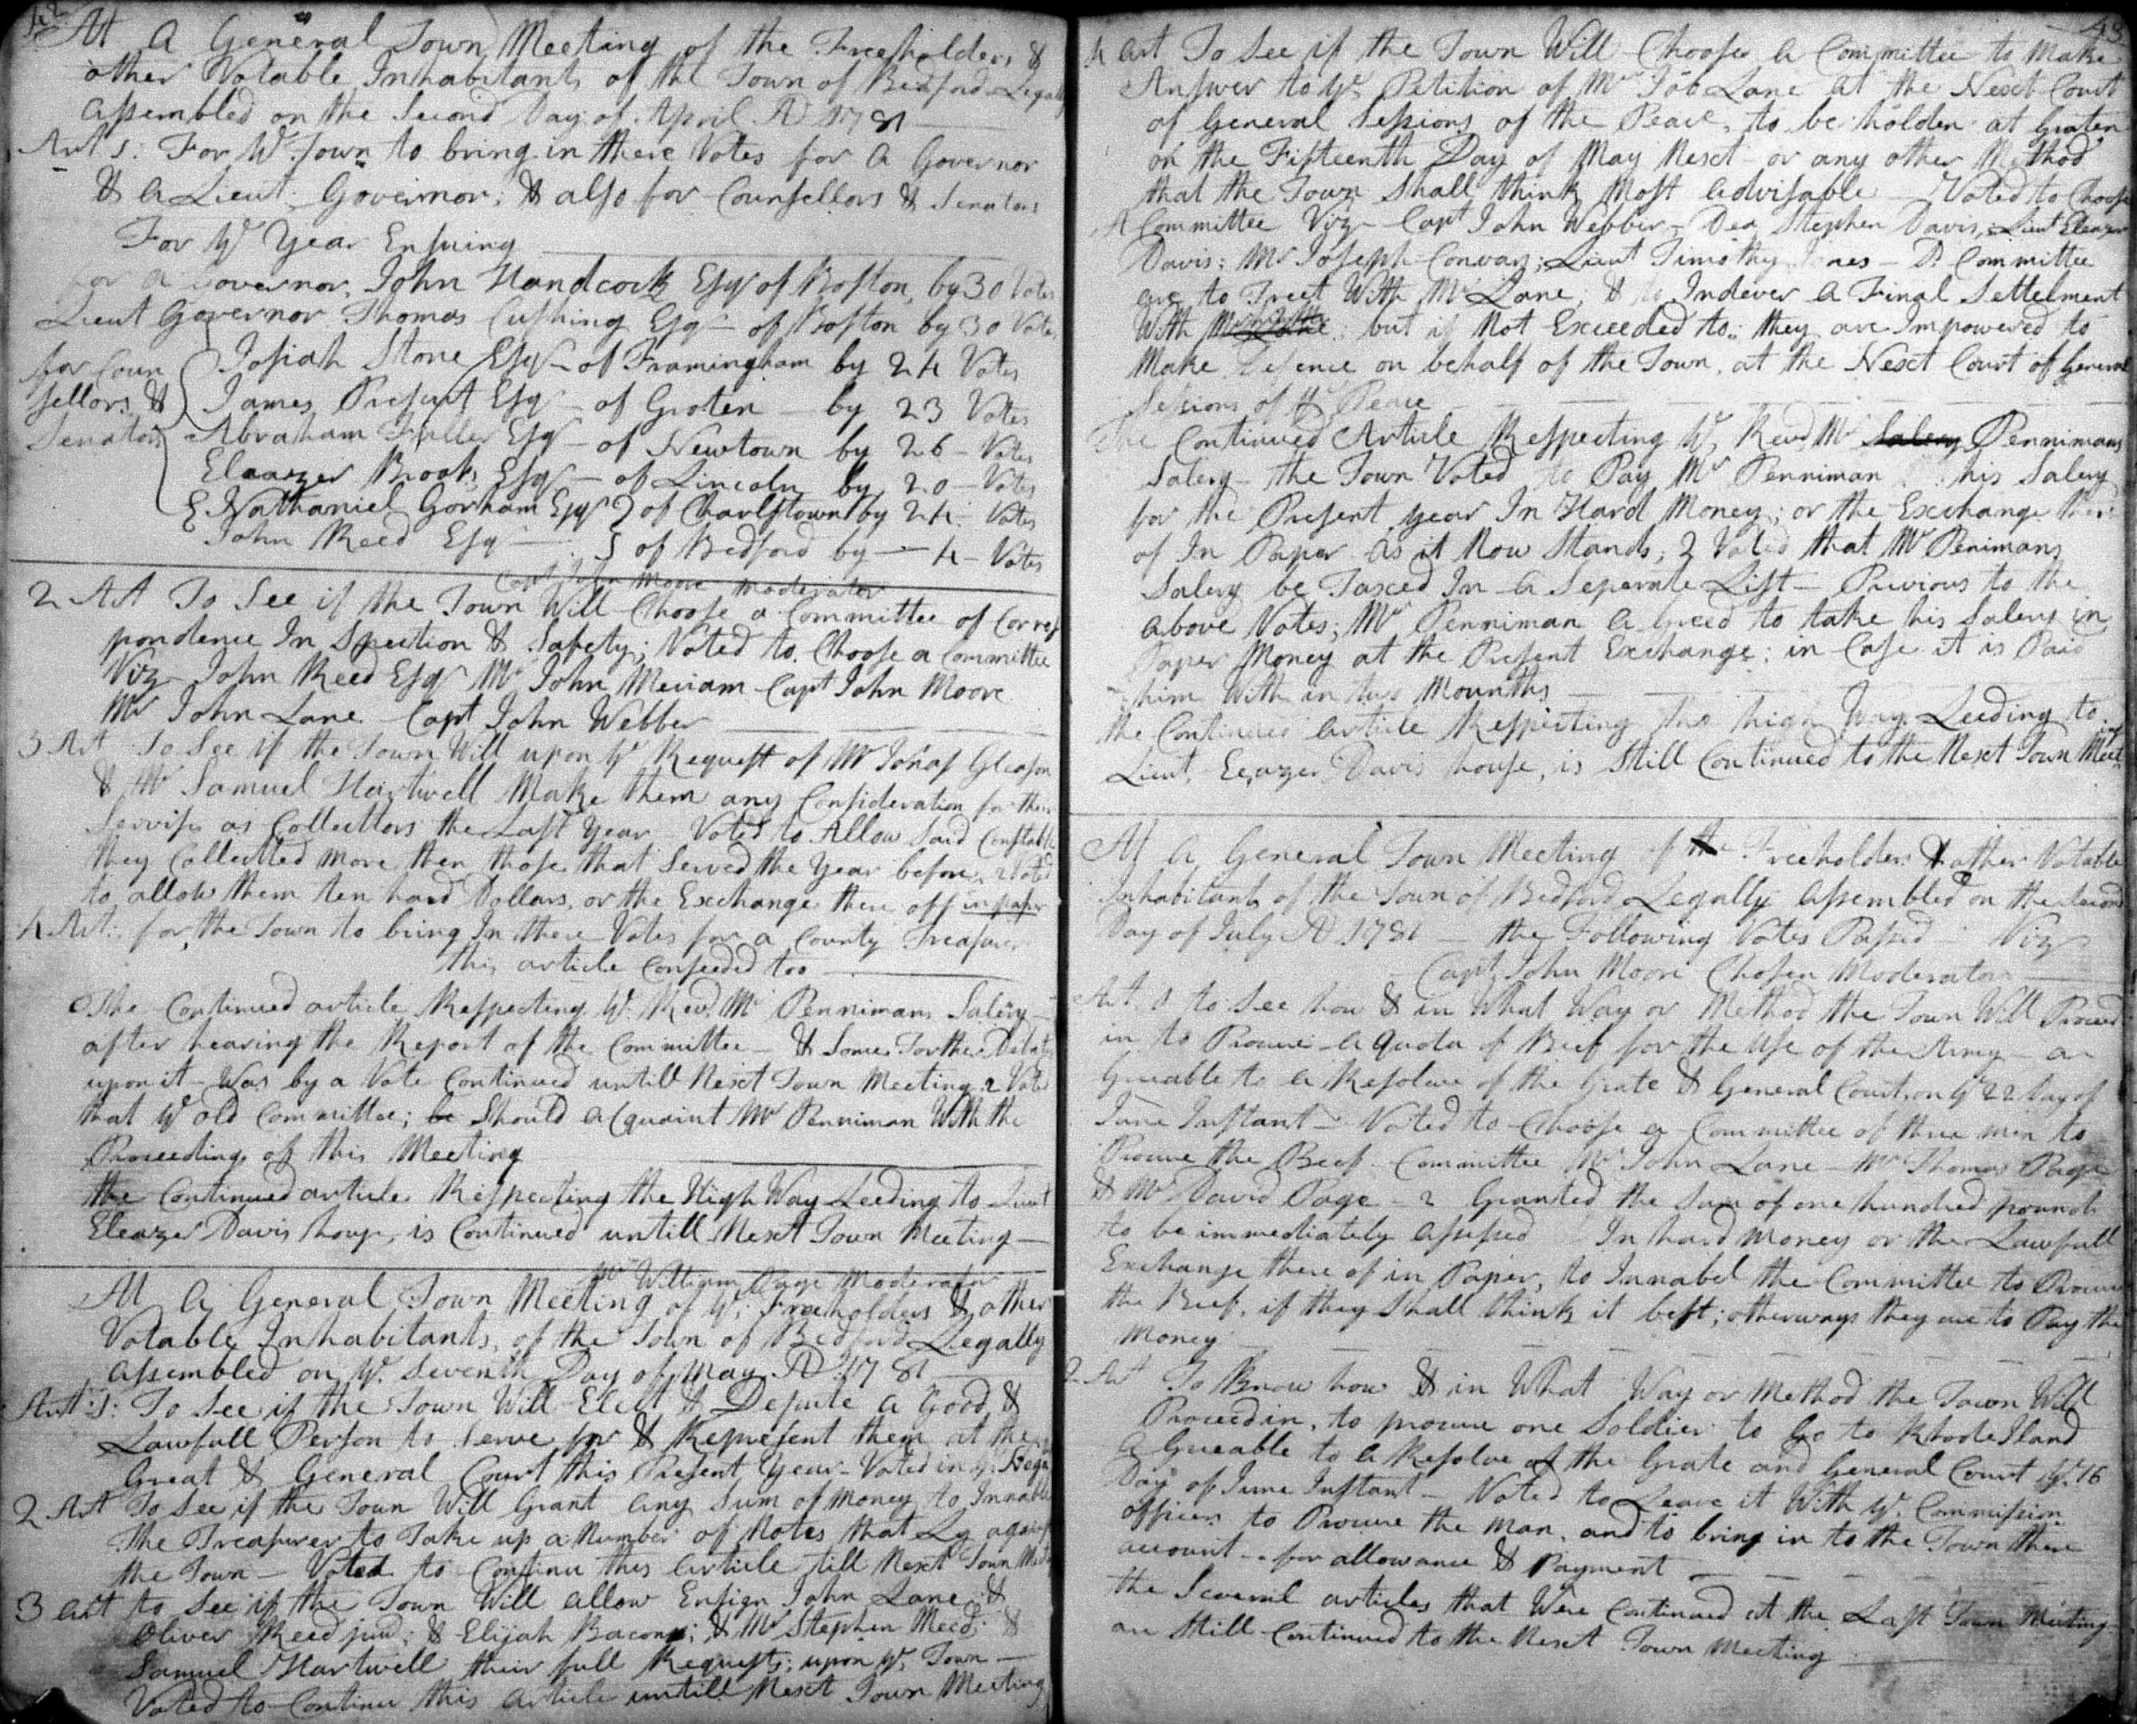 42
At A General Town Meeting of the Freeholders &
other Votable Inhabitants of the Town of Bedford Legally
assembled on the Second Day of April AD 1781
Art 1: For ye Town to bring in there Votes for a Governor
& a Lieut Governor; & also for Counsellors & Senators
For ye Year Ensuing
for a Governor, John Handcock Esqr of Boston, by 30 Votes
Lieut Governor Thomas Cushing Esqr of Boston by 30 Votes
for Coun
sellors &
Senators
Josiah Stone Esqr of Framingham by 24 Votes
James Prescut Esqr of Groten by 23 Votes
Abraham Fuller Esqr of Newtown by 26 Votes
Eleazer Brooks Esqr of Lincoln by 20 Votes
Nathaniel Gorham Esqr of Charlstown by 24 Votes
John Reed Esqr of Bedford by 4 Votes
Capt John Moore Moderator
2 Art To See if the Town Will Choose a Committee of Corres
pondence In Spection & Safety; Voted to Choose a Committee
Viz John Reed Esqr Mr John Meriam Capt John Moore
Mr John Lane Capt John Webber
3 Art To See if the Town Will upon ye Request of Mr Jonas Gleason
& Mr Samuel Hartwell Make them any Consideration for their
Servise as Collectors the Last Year Voted to Allow said Constable
they Collected more then those that Served the Year before, 2 Voted
to allow them ten hard Dollars, or the Exchange there off in paper
4 Art: for the Town to bring In there Votes for a County Treasurer
this article Conseeded too
The Continued article Respecting ye Revd Mr Pennimans Salery
after hearing the Report of the Committee & Some Forther Debates
upon it Was by a Vote Continued untill Next Town Meeting 2 Voted
that ye old Committee; be Should acquaint Mr Penniman With the
Proceedings of this Meeting
the Continued article Respecting the High Way Leeding to Lieut
Eleazer Davis house, is Continued untill Next Town Meeting
Mr William Page Moderator
At A General Town Meeting of ye Freeholders & other
Votable Inhabitants, of the Town of Bedford Legally
assembled on ye Seventh Day of May AD 1781
Art 1: To See if the Town Will Elect & Depute a Good &
Lawfull Person to Serve for & Represent them at the
Great & General Court this Present Year Voted in ye
2 Art To See if the Town Will Grant any Sum of Money to Innable
the Treasurer to Take up a Number of Notes that Ly against
the Town Voted to Continue this article till Next Town Meeting
3 art to See if the Town Will allow Ensign John Lane &
Oliver Reed junr; & Elijah Bacon; & Mr Stephen Meed; &
Samuel Hartwell their full Requests; upon ye Town
Voted to Continue this article untill Next Town Meeting
43
4 art To See if the Town Will Choose a Committee to Make
Answer to ye Petition of Mr Job Lane at the Next Court
of General Sessions of the Peace, to be holden at Groten
on the Fifteenth Day of May Next or any other Method
that the Town Shall think Most advisable Voted to Choose
A Committee Viz Capt John Webber Dea Stephen Davis, Lieut Eleazer
Davis; Mr Joseph Convars; Lieut Timothy Do Committee
are to Treet With Mr Lane; & to Indever a Final Settelment
With Mr Lane: but if Not Exceeded to; they are Impowered to
Make Defence on behalf of the Town, at the Next Court of General
Sessions of ye Peace
The Continued Article Respecting ye Revd Mr Salery Pennimans
Salery the Town Voted to Pay Mr Penniman his Salery
for the Present year In Hard Money; or the Exchange there
of In Paper as it Now Stands; 2 Voted that Mr Penimans
Salery be Taxed In a Seperate List Previous to the
above Votes; Mr Penniman a Greed to take his Salery in
Paper Money at the Present Exchange: in Case it is Paid
him With in two Mounths
the Continued article Respecting the high Way Leeding to
Lieut. Eleazer Davis house, is Still Continued to the Next Town Meeting
At A General Town Meeting of the Freeholders & other Votable
Inhabitants of the Town of Bedford Legally assembled on the Second
Day of July AD 1781 the Following Votes Passed Viz
Capt John Moore Chosen Moderator
Art 1 to See how & in What Way or Method the Town Will Proceed
in to Procure a Quota of Beef for the Use of the Army a
Greeable to a Resolve of the Grate & General Court, on ye 22 Day of
June Instant Voted to Choose a Committee of three men to
Procure the Beef Committee Mr John Lane Mr Thomas Page
& Mr David Page 2 Granted the Sum of one hundred pounds
to be immediately assessed In hard money or the Lawfull
Exchange there of in Paper, to Innabel the Committee to Procure
the Beef, if they Shall think it best; otherways they are to Pay the
Money
2 Art To Know how & in What Way or Method the Town Will
Proceed in, to procure one Soldier to Go to Rhode Iland
a Greeable to a Resolve of the Grate and General Court ye 16
Day of June Instant Voted to Leave it With ye Commission
officers to Procure the man, and to bring in to the Town there
account for allowance & Payment
the Several articles that Were Continued at the Last Town Meeting
are Still Continued to the Next Town Meeting